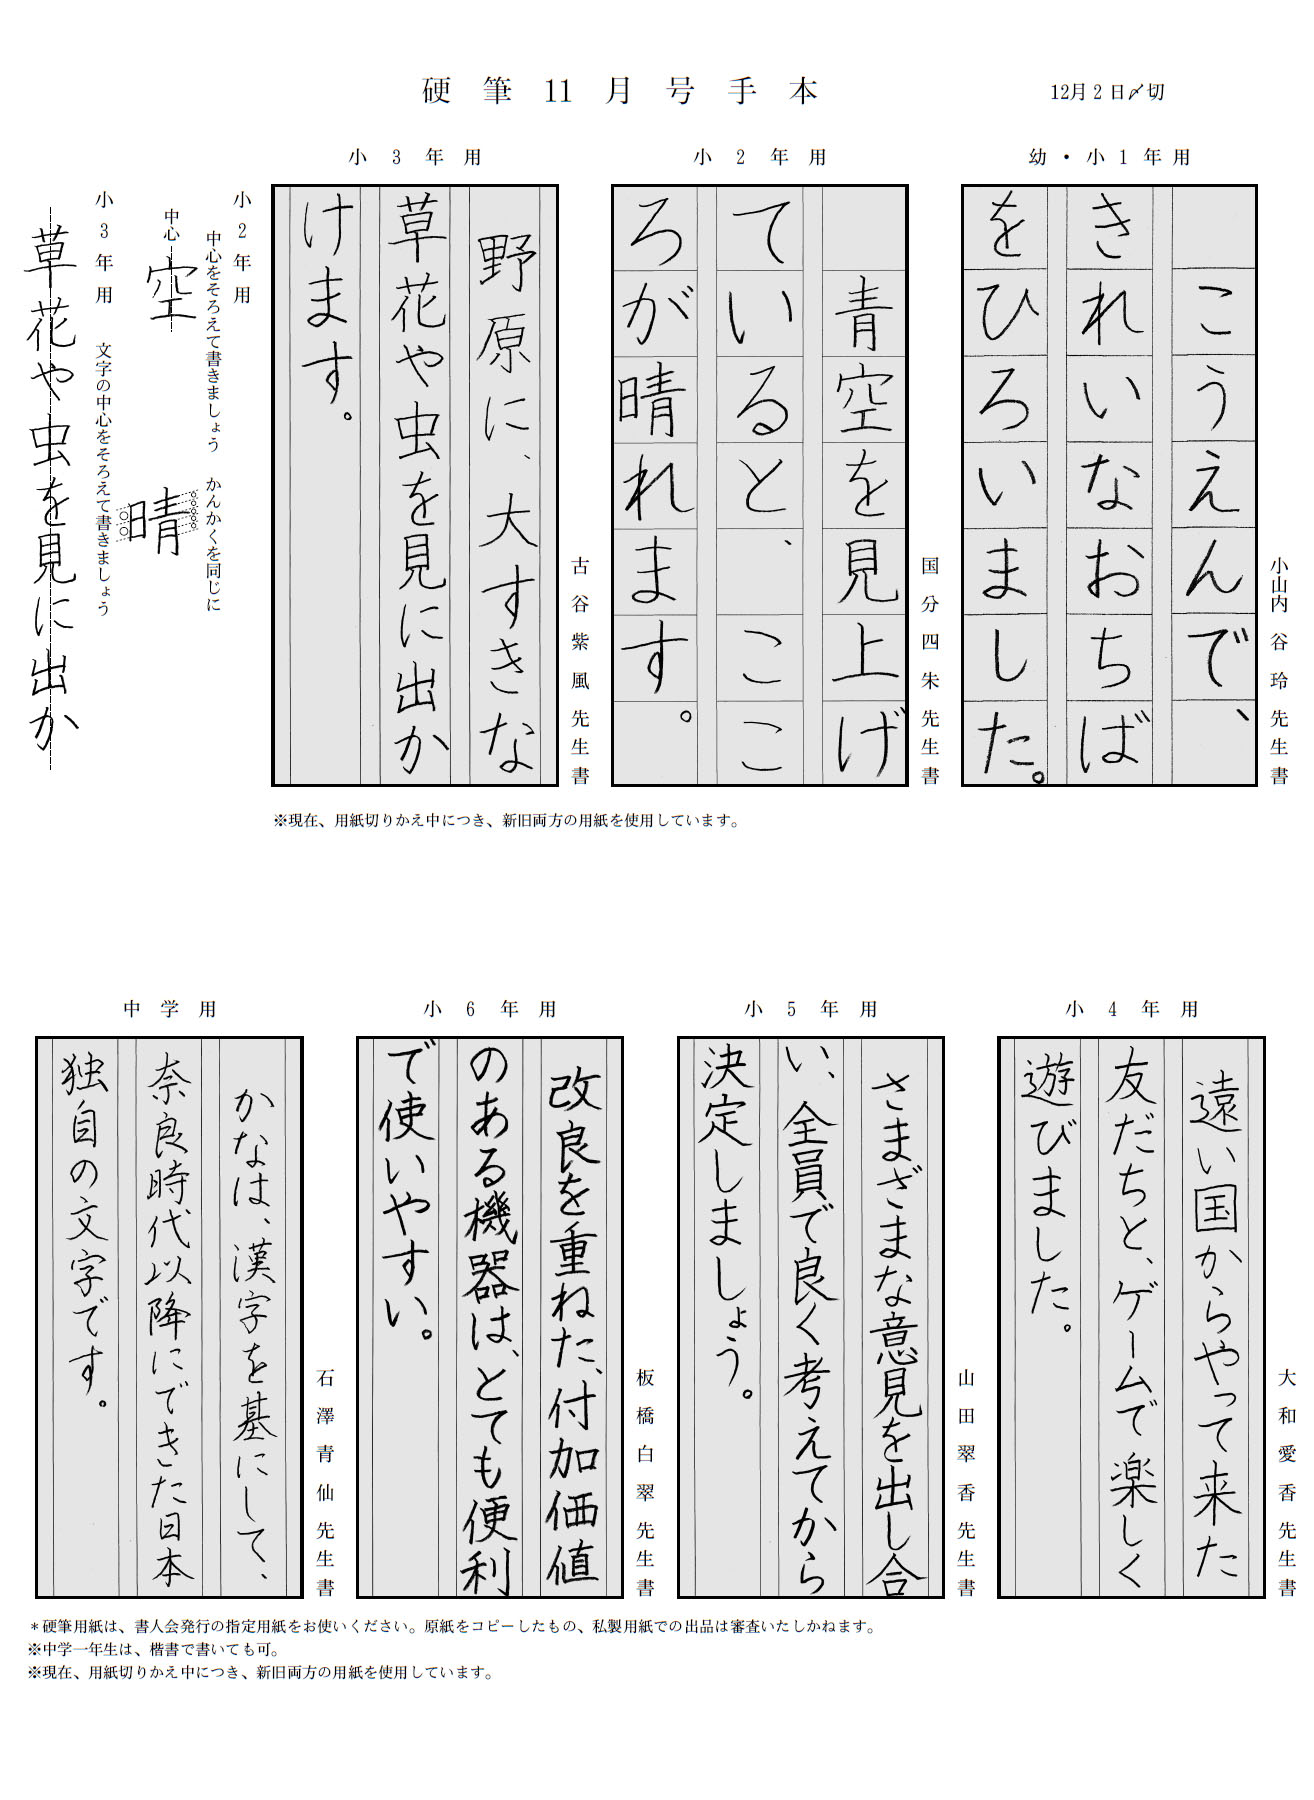 硬筆11月号手本
12月2日〆切
幼・小1年用
こうえんで、
きれいなおちば
をひろいました。
小山内谷玲先生書
小2年用
青空を見上げ
ていると、ここ
ろが晴れます。
国分四朱先生書
小3年用
野原に、大すきな
草花や虫を見に出か
けます。
古谷紫風先生書
小2年用
中心をそろえて書きましょう
中心
空
かんかくを同じに
晴
小3年用
文字の中心をそろえて書きましょう
草花や虫を見に出か
※現在、用紙切りかえ中につき、新旧両方の用紙を使用しています。
小4年用
遠い国からやって来た
友だちと、ゲームで楽しく
遊びました。
大和愛香先生書
小5年用
さまざまな意見を出し合
い、全員で良く考えてから
決定しましょう。
山田翠香先生書
小6年用
改良を重ねた、付加価値
のある機器は、とても便利
で使いやすい。
板橋白翠先生書
中学用
かなは、漢字を基にして、
奈良時代以降にできた日本
独自の文字です。
石澤青仙先生書
＊硬筆用紙は、書人会発行の指定用紙をお使いください。原紙をコピーしたもの、私製用紙での出品は審査いたしかねます。
※中学一年生は、楷書で書いても可。
※現在、用紙切りかえ中につき、新旧両方の用紙を使用しています。